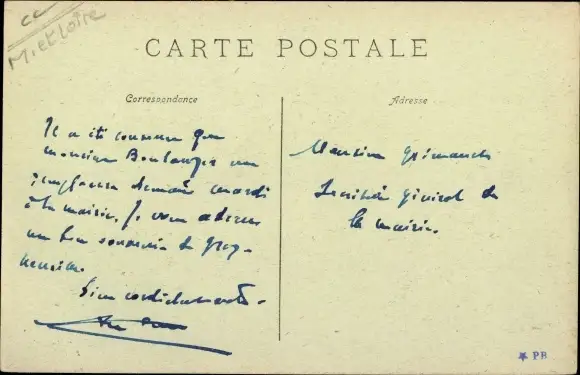 cc
M. et Loire
CARTE POSTALE
Correspondance
Adresse
Il a été convenu que
monsieur Boulanger me
remplacera demain mardi
à la mairie. Je vous adresse
un bon souvenir de
Bien cordialement.
Monsieur
Secrétaire général de
la mairie.
PB